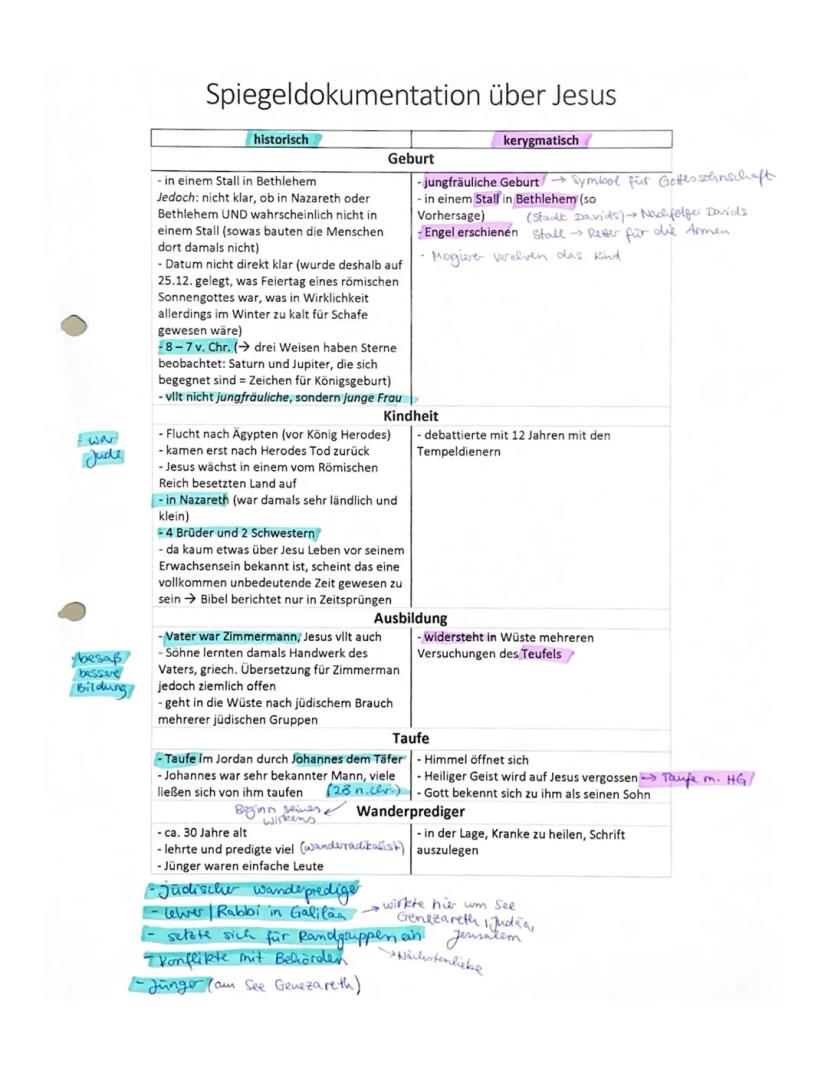 Spiegeldokumentation über Jesus
historisch
kerygmatisch
Geburt
- in einem Stall in Bethlehem
Jedoch: nicht klar, ob in Nazareth oder
Bethlehem UND wahrscheinlich nicht in
einem Stall (sowas bauten die Menschen
dort damals nicht)
- Datum nicht direkt klar (wurde deshalb auf
25.12. gelegt, was Feiertag eines römischen
Sonnengottes war, was in Wirklichkeit
allerdings im Winter zu kalt für Schafe
gewesen wäre)
- 8 – 7 v. Chr. (→ drei Weisen haben Sterne
beobachtet: Saturn und Jupiter, die sich
begegnet sind = Zeichen für Königsgeburt)
- vllt nicht jungfräuliche, sondern junge Frau
- jungfräuliche Geburt → Symbol für Gottessohnschaft
- in einem Stall in Bethlehem (so
Vorhersage) (Stadt Davids) → Nachfolger Davids
- Engel erschienen Stall → Retter für die Armen
- Magier verehren das Kind
Kindheit
- war
Jude
- Flucht nach Ägypten (vor König Herodes)
- kamen erst nach Herodes Tod zurück
- Jesus wächst in einem vom Römischen
Reich besetzten Land auf
- in Nazareth (war damals sehr ländlich und
klein)
- 4 Brüder und 2 Schwestern
- da kaum etwas über Jesu Leben vor seinem
Erwachsensein bekannt ist, scheint das eine
vollkommen unbedeutende Zeit gewesen zu
sein → Bibel berichtet nur in Zeitsprüngen
- debattierte mit 12 Jahren mit den
Tempeldienern
Ausbildung
besaß
bessere
Bildung
- Vater war Zimmermann, Jesus vllt auch
- Söhne lernten damals Handwerk des
Vaters, griech. Übersetzung für Zimmerman
jedoch ziemlich offen
- geht in die Wüste nach jüdischem Brauch
mehrerer jüdischen Gruppen
- widersteht in Wüste mehreren
Versuchungen des Teufels
Taufe
- Taufe im Jordan durch Johannes dem Täfer
- Johannes war sehr bekannter Mann, viele
ließen sich von ihm taufen (28 n. Chr.)
- Himmel öffnet sich
- Heiliger Geist wird auf Jesus vergossen → Taufe m. HG
- Gott bekennt sich zu ihm als seinen Sohn
Beginn seines
Wirkens
Wanderprediger
- ca. 30 Jahre alt
- lehrte und predigte viel (Wanderradikalist)
- Jünger waren einfache Leute
- in der Lage, Kranke zu heilen, Schrift
auszulegen
- jüdischer Wanderprediger
- Lehrer | Rabbi in Galiläa → wirkte hier um See
Genezareth, Judäa,
Jerusalem
- setzte sich für Randgruppen ein
→ Nächstenliebe
- Konflikte mit Behörden
- Jünger (am See Genezareth)